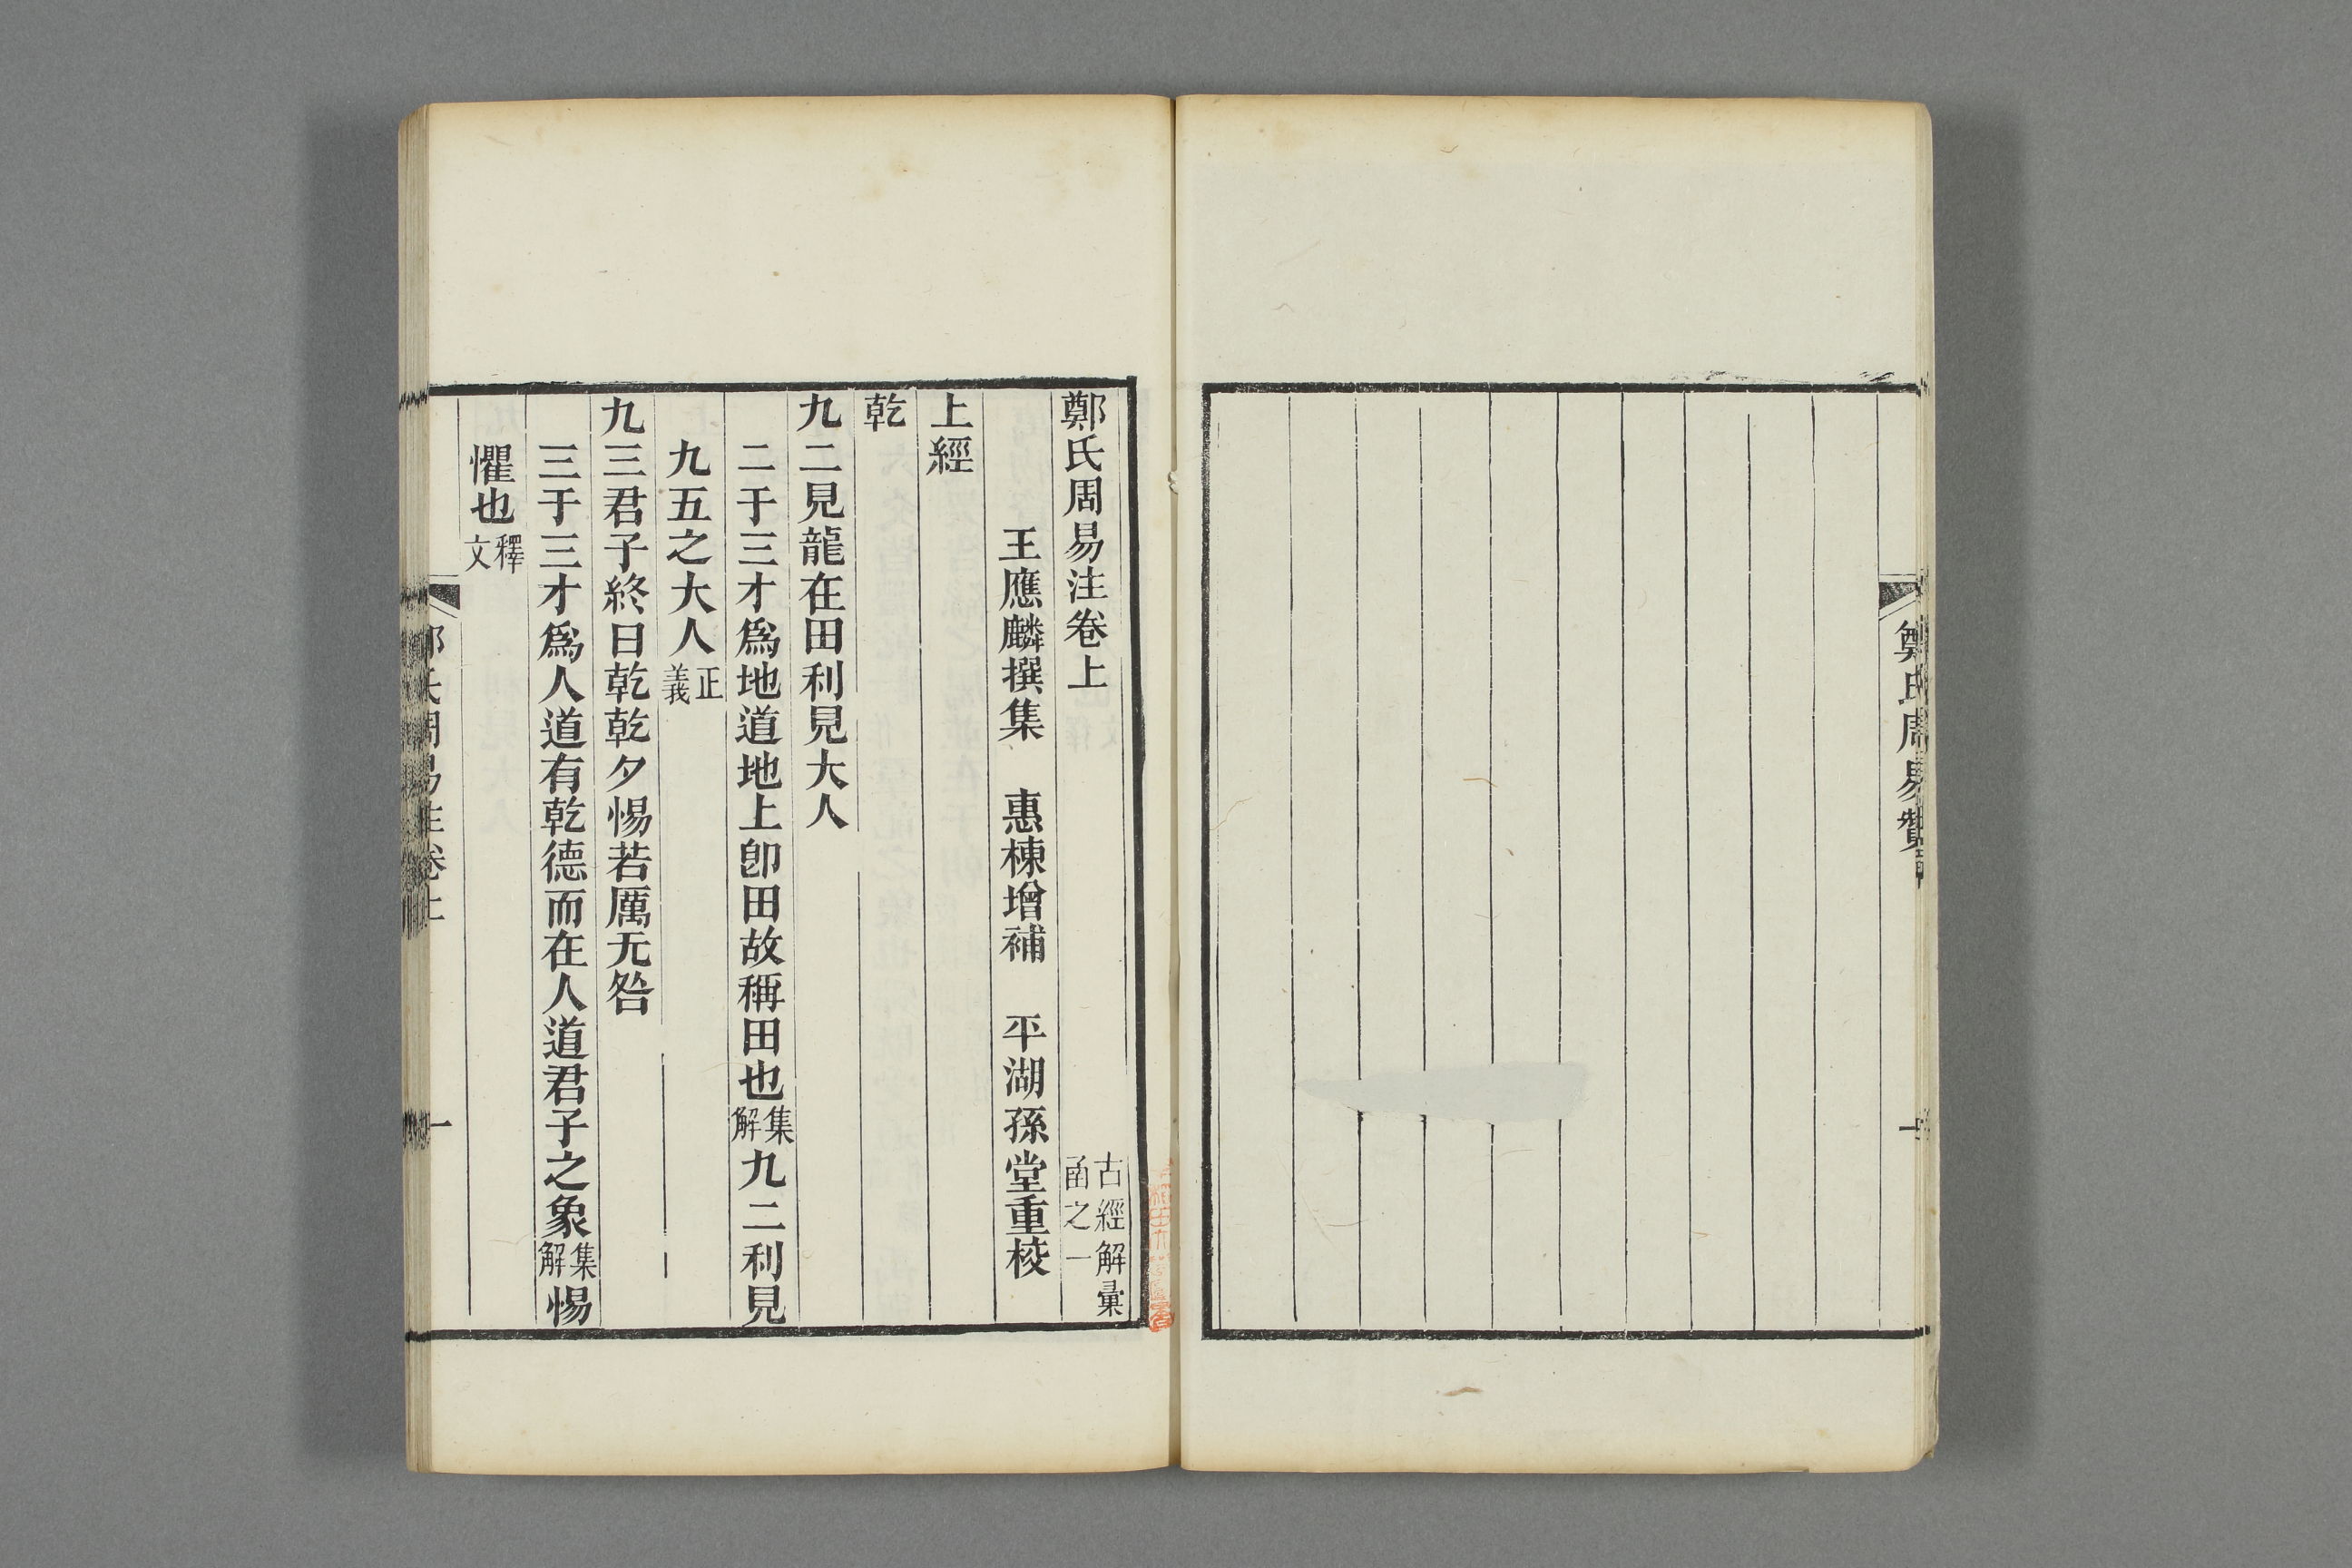 鄭氏周易贊
一
鄭氏周易注卷上 古經解彙函之一
王應麟撰集 惠棟增補 平湖孫堂重梭
上經
乾
九二見龍在田利見大人
二于三才爲地道地上卽田故稱田也集解九二利見
九五之大人正義
九三君子終日乾乾夕惕若厲无咎
三于三才爲人道有乾德而在人道君子之象集解惕
懼也釋文
鄭氏周易注卷上
一